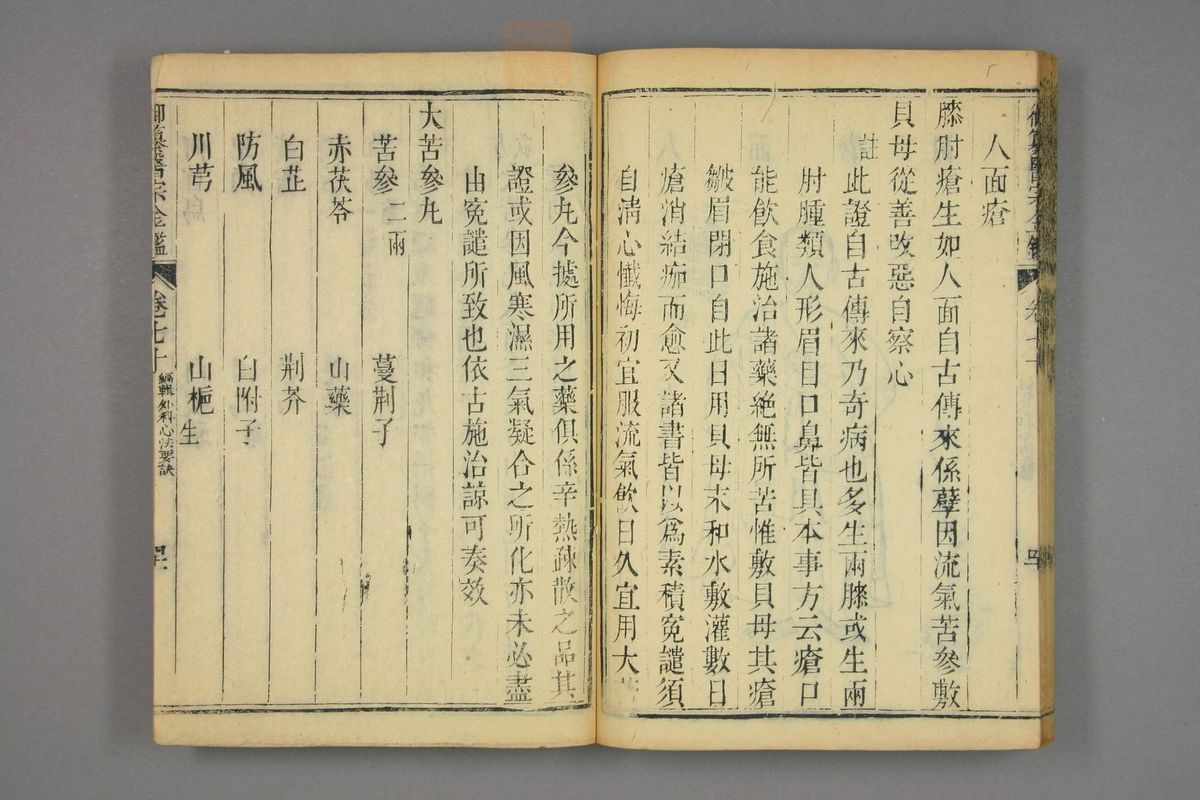 人面瘡
膝肘瘡生如人面自古傳來係孽因流氣苦參敷
貝母從善改惡自察心
註此證自古傳來乃奇病也多生兩膝或生兩
肘腫類人形眉目口鼻皆具本事方云瘡口
能飲食施治諸藥絕無所苦惟敷貝母其瘡
皺眉閉口自此日用貝母末和水敷灌數日
瘡消結痂而愈又諸書皆以為素積冤譴須
自清心懺悔初宜服流氣飲日久宜用大苦
參丸今據所用之藥俱係辛熱疎散之品其
證或因風寒濕三氣凝合之所化亦未必盡
由冤譴所致也依古施治諒可奏效
大苦參丸
苦參二兩 蔓荊子
赤茯苓 山藥
白芷 荊芥
防風 白附子
川芎 山梔生
御纂醫宗金鑑 卷七十 編輯外科心法要訣